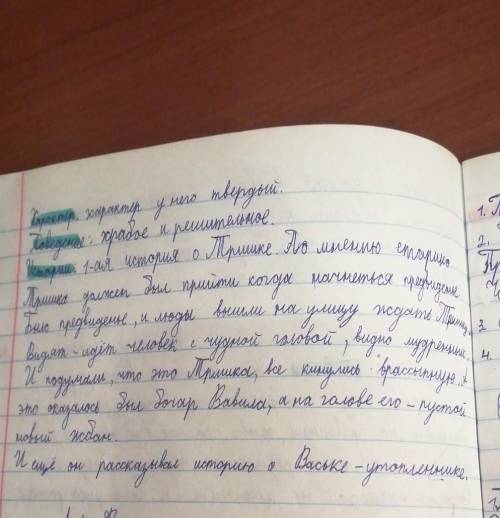 Характер: характер у него твердый.
Поведение: храброе и решительное.
История: 1-ая история о Тришке. По мнению старика
Тришка должен был прийти когда начнеться предвиденье
Было предвиденье, и люды вышли на улицу ждать Тришку,
Видят - идёт человек с чудной головой, видно мудренный,
И подумали, что это Тришка, все кинулись врассыпную, а
это оказалось был бочар Вавила, а на голове его - пустой
новый жбан.
И ещё он рассказывал историю о Ваське - утопленнике.
1.
2.
3
4.